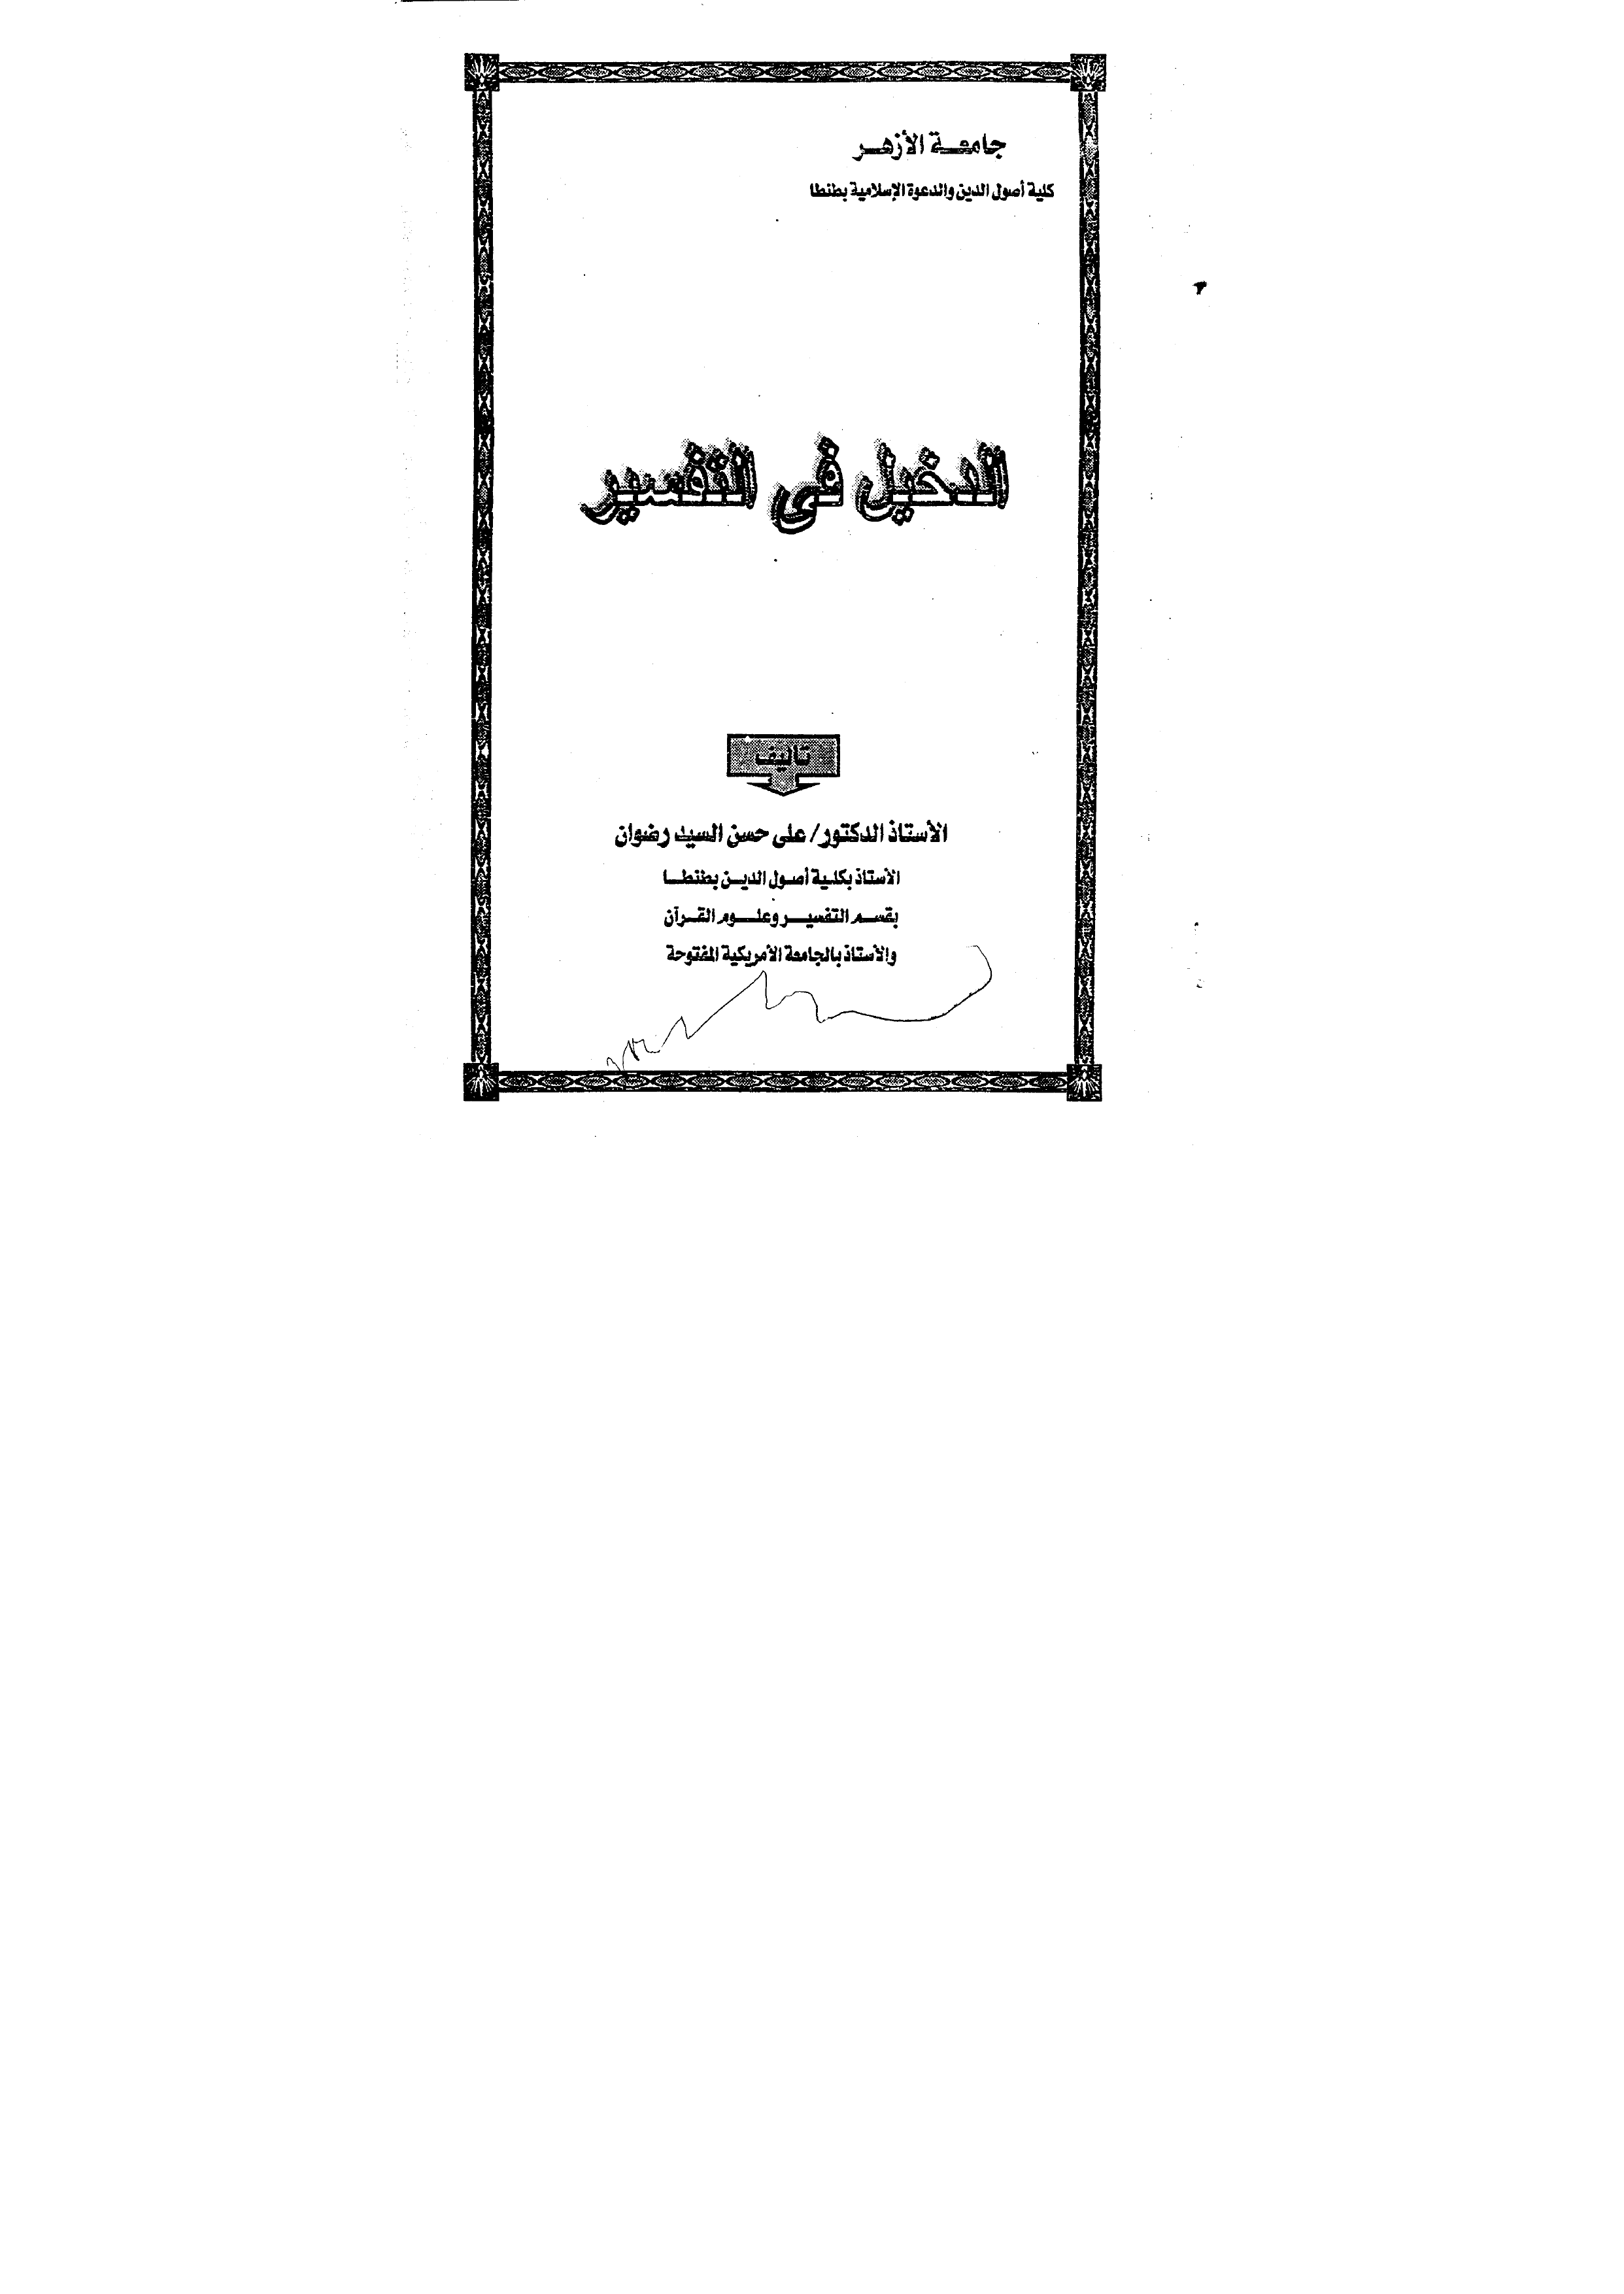 جامعة الأزهر
كلية أصول الدين والدعوة الإسلامية بطنطا
الدخيل فى التفسير
تأليف
الأستاذ الدكتور/ على حسن السيد رضوان
الأستاذ بكلية أصول الدين بطنطا
بقسم التفسير وعلوم القرآن
والأستاذ بالجامعة الأمريكية المفتوحة